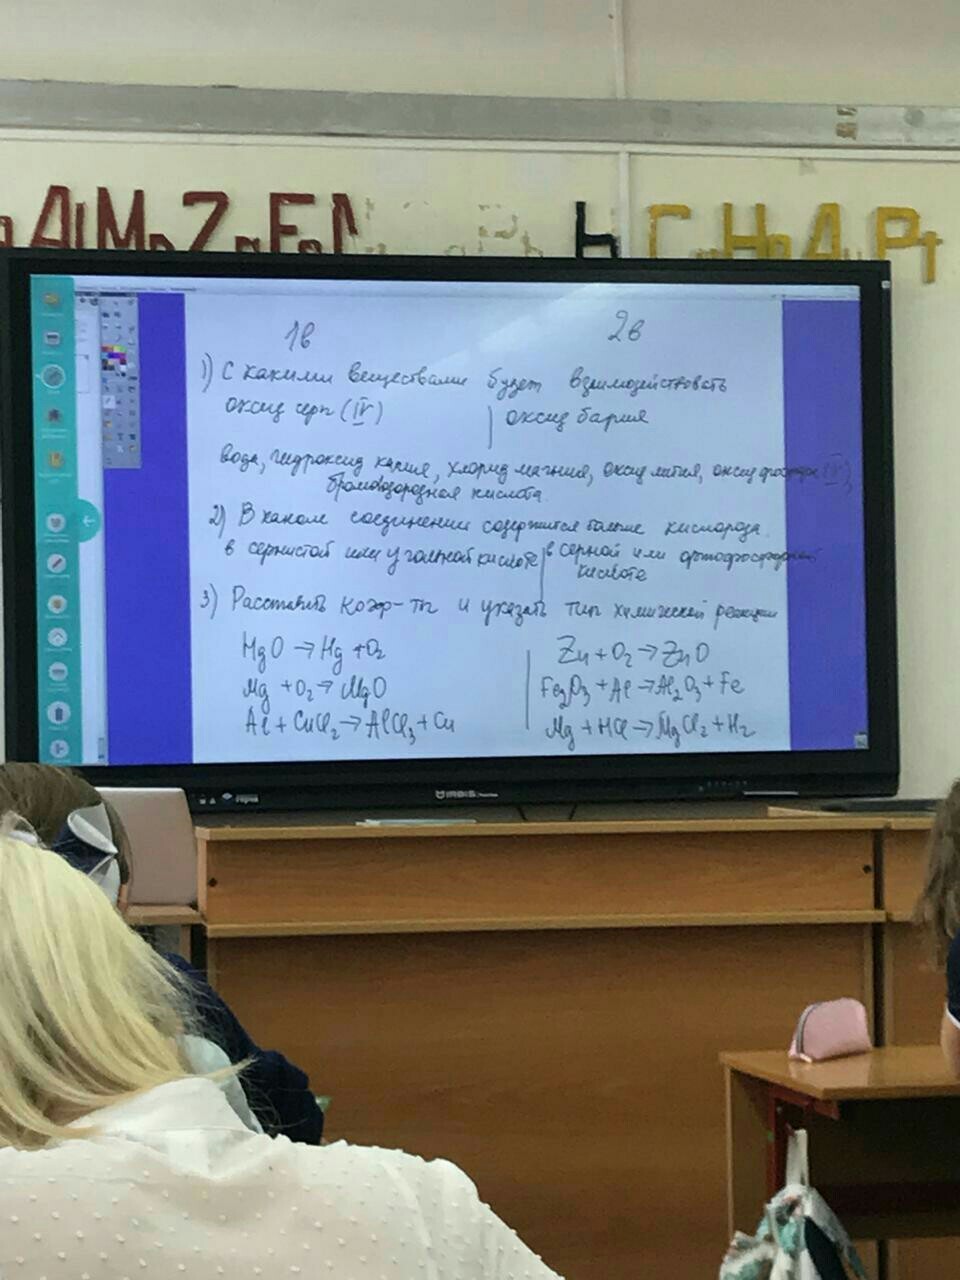 Al Mn Zn Fe
Hg Au Pt
1в 2в
1) С какими веществами будет взаимодействовать
оксид серы (IV) | оксид бария
вода, гидроксид калия, хлорид магния, оксид лития, оксид фосфора (V),
бромоводородная кислота.
2) В каком соединении содержится больше кислорода.
в сернистой или угольной кислоте | в серной или ортофосфорной
кислоте
3) Расставить коэф-ты и указать тип химической реакции
HgO → Hg + O₂ | Zn + O₂ → ZnO
Mg + O₂ → MgO | Fe₂O₃ + Al → Al₂O₃ + Fe
Al + CuCl₂ → AlCl₃ + Cu | Mg + HCl → MgCl₂ + H₂
IRBIS